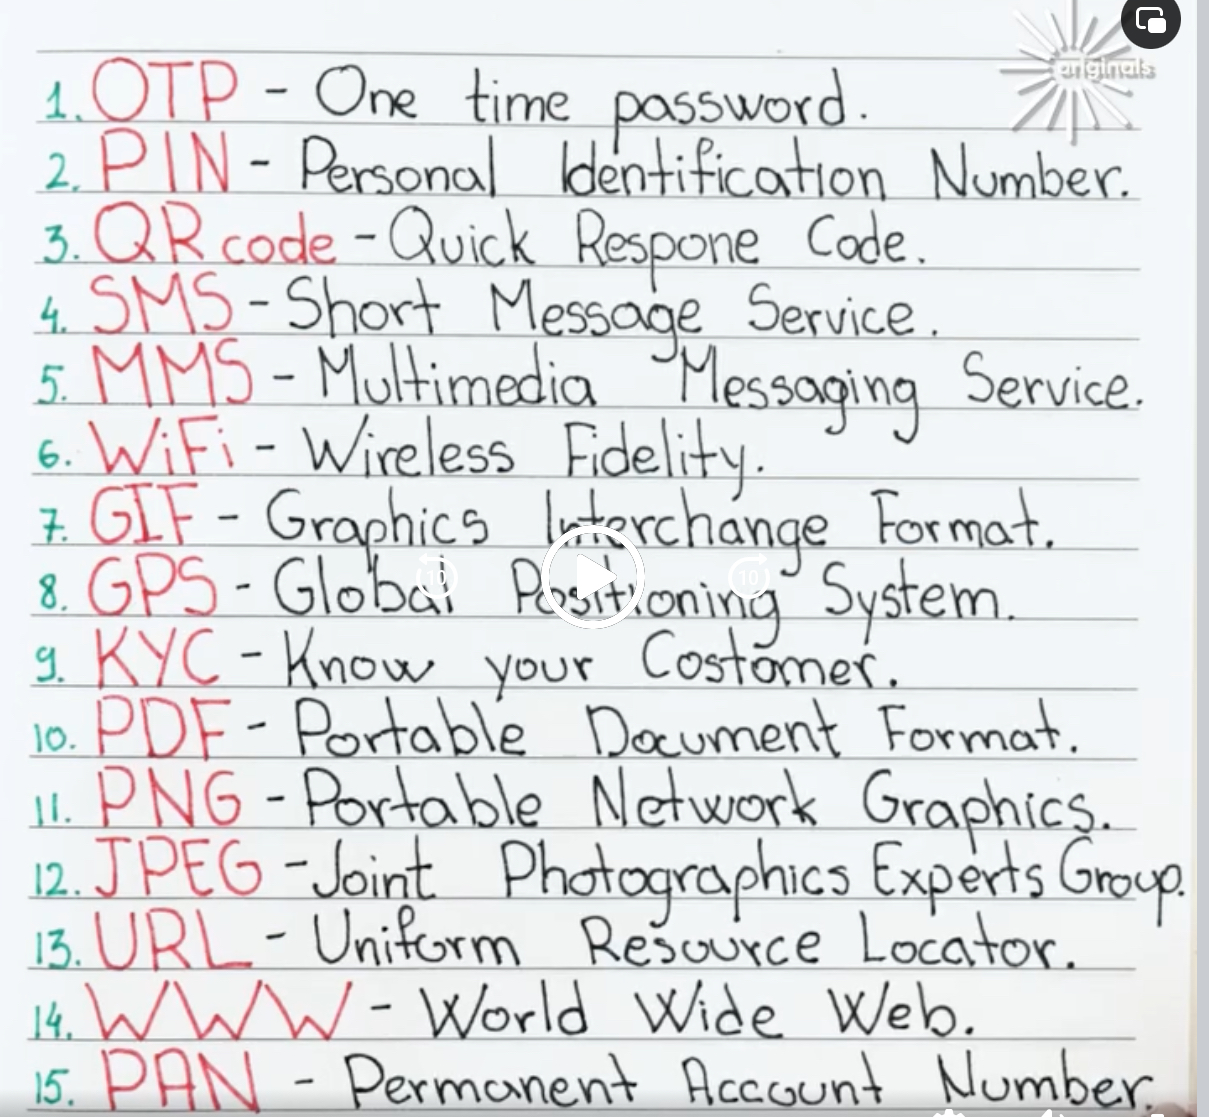 originals
1. OTP - One time password.
2. PIN - Personal Identification Number.
3. QR code - Quick Respone Code.
4. SMS - Short Message Service.
5. MMS - Multimedia Messaging Service.
6. WiFi - Wireless Fidelity.
7. GIF - Graphics Interchange Format.
10 10
8. GPS - Global Positioning System.
9. KYC - Know your Costomer.
10. PDF - Portable Document Format.
11. PNG - Portable Network Graphics.
12. JPEG - Joint Photographics Experts Group.
13. URL - Uniform Resource Locator.
14. WWW - World Wide Web.
15. PAN - Permanent Account Number.